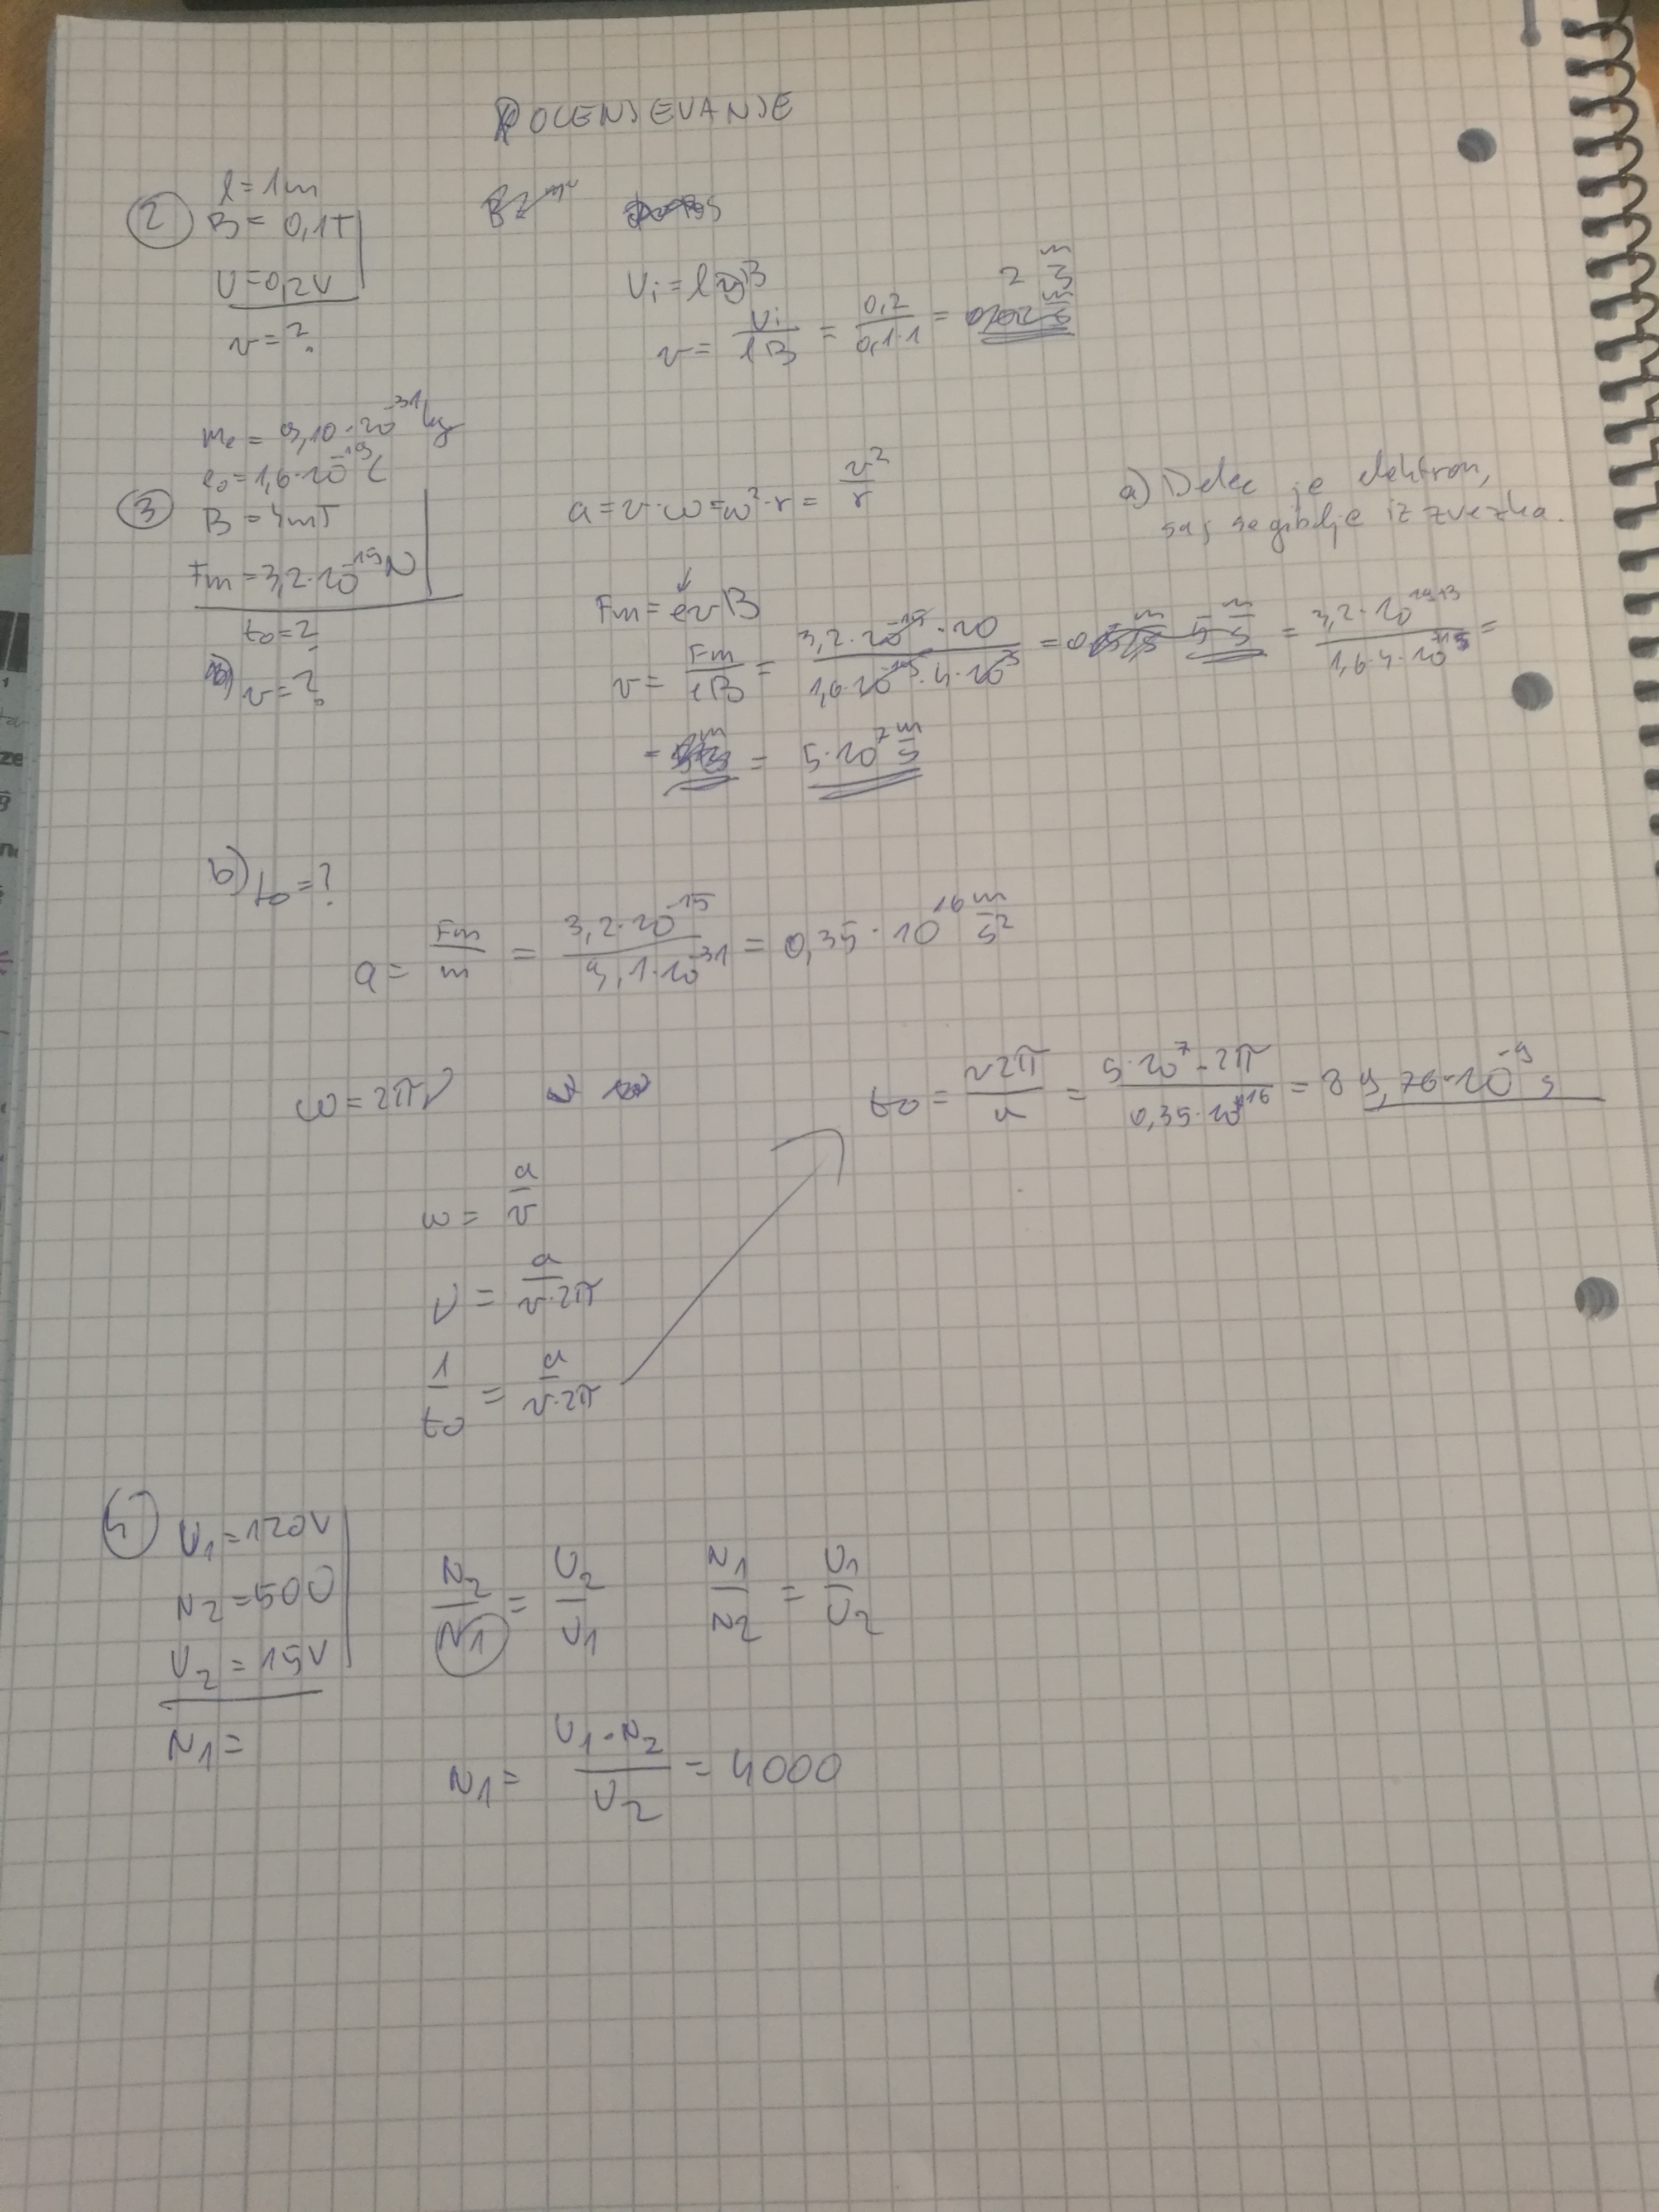 POCENJEVANJE
② l = 1m
B = 0,1T
U = 0,2V
v = ?
Ui = l v B
v = Ui / lB = 0,2 / 0,1·1 = 2 m/s
me = 9,10·10^-31 kg
e0 = 1,6·10^-19 C
③ B = 4mT
Fm = 3,2·10^-15 N
t0 = ?
v = ?
a = v·ω = ω²·r = v²/r
a) Delec je elektron,
saj se giblje iz zvezka.
Fm = evB
v = Fm / eB = 3,2·10^-15·10 / 1,6·10^-19·4·10^-3 = 5 m/s = 3,2·10^19+3 / 1,6·4·10^15 =
= 5·10^7 m/s
b) t0 = ?
a = Fm / m = 3,2·10^-15 / 9,1·10^-31 = 0,35·10^16 m/s²
ω = 2πν
t0 = v2π / a = 5·10^7·2π / 0,35·10^16 = 89,76·10^-9 s
ω = a / v
ν = a / v·2π
1 / t0 = a / v·2π
④ U1 = 120V
N2 = 500
U2 = 15V
N1 =
N2 / N1 = U2 / U1
N1 / N2 = U1 / U2
N1 = U1·N2 / U2 = 4000